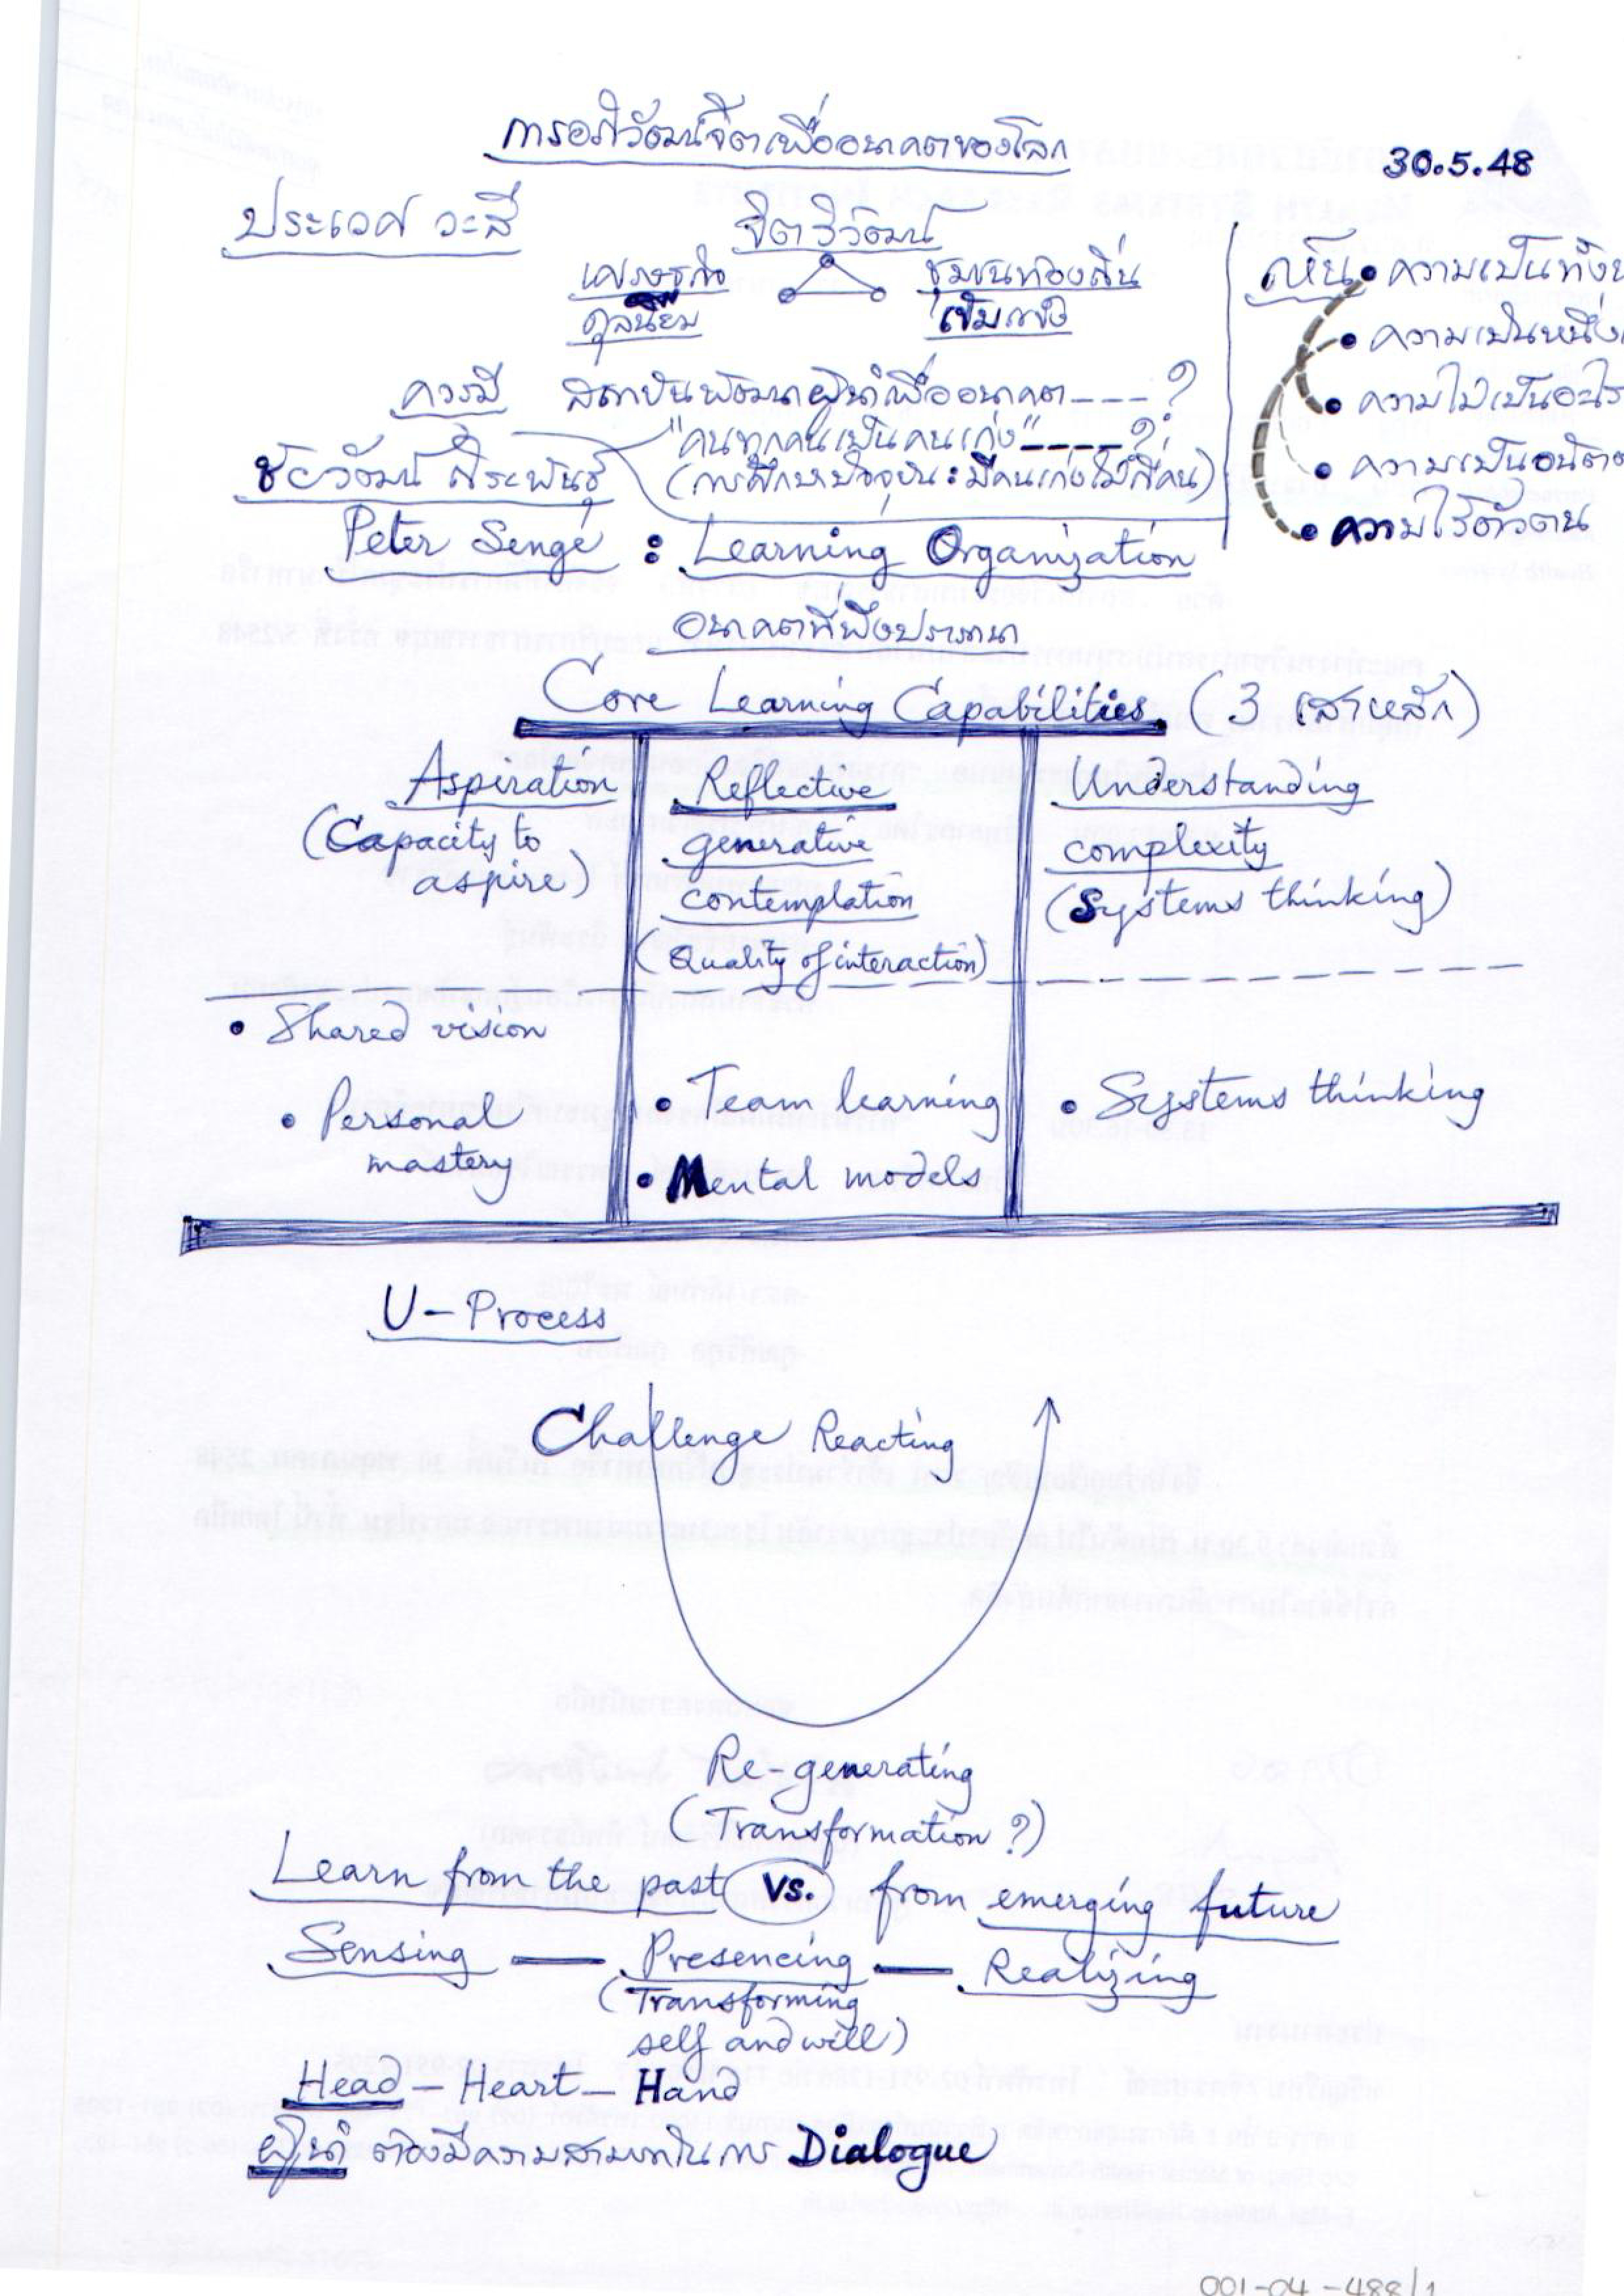 การอภิวัฒน์จิตเพื่ออนาคตของโลก
30.5.48
ประเวศ วะสี
จิตวิวัฒน์
เศรษฐกิจ ชุมชนท้องถิ่น
ดุลนิยม เข้มแข็ง
เห็น • ความเป็นทั้ง
• ความเป็นหนึ่ง
• ความไม่เป็นอะไร
• ความเป็นอนัต
• ความไร้ตัวตน
ควรมี สถาบันพัฒนาผู้นำเพื่ออนาคต---?
"คนทุกคนเป็นคนเก่ง"----?
(การศึกษาปัจจุบัน: มีคนเก่งไม่กี่คน)
ชัยวัฒน์ ถิระพันธุ์
Peter Senge : Learning Organization
อนาคตที่พึงปรารถนา
Core Learning Capabilities (3 เสาหลัก)
Aspiration
(Capacity to
aspire)
Reflective
generative
contemplation
(Quality of interaction)
Understanding
complexity
(Systems thinking)
• Shared vision
• Personal
mastery
• Team learning
• Mental models
• Systems thinking
U-Process
Challenge Reacting
Re-generating
(Transformation?)
Learn from the past vs. from emerging future
Sensing — Presencing — Realizing
(Transforming
self and will)
Head - Heart - Hand
ผู้นำ ต้องมีความสามารถในการ Dialogue
001-04-488/1